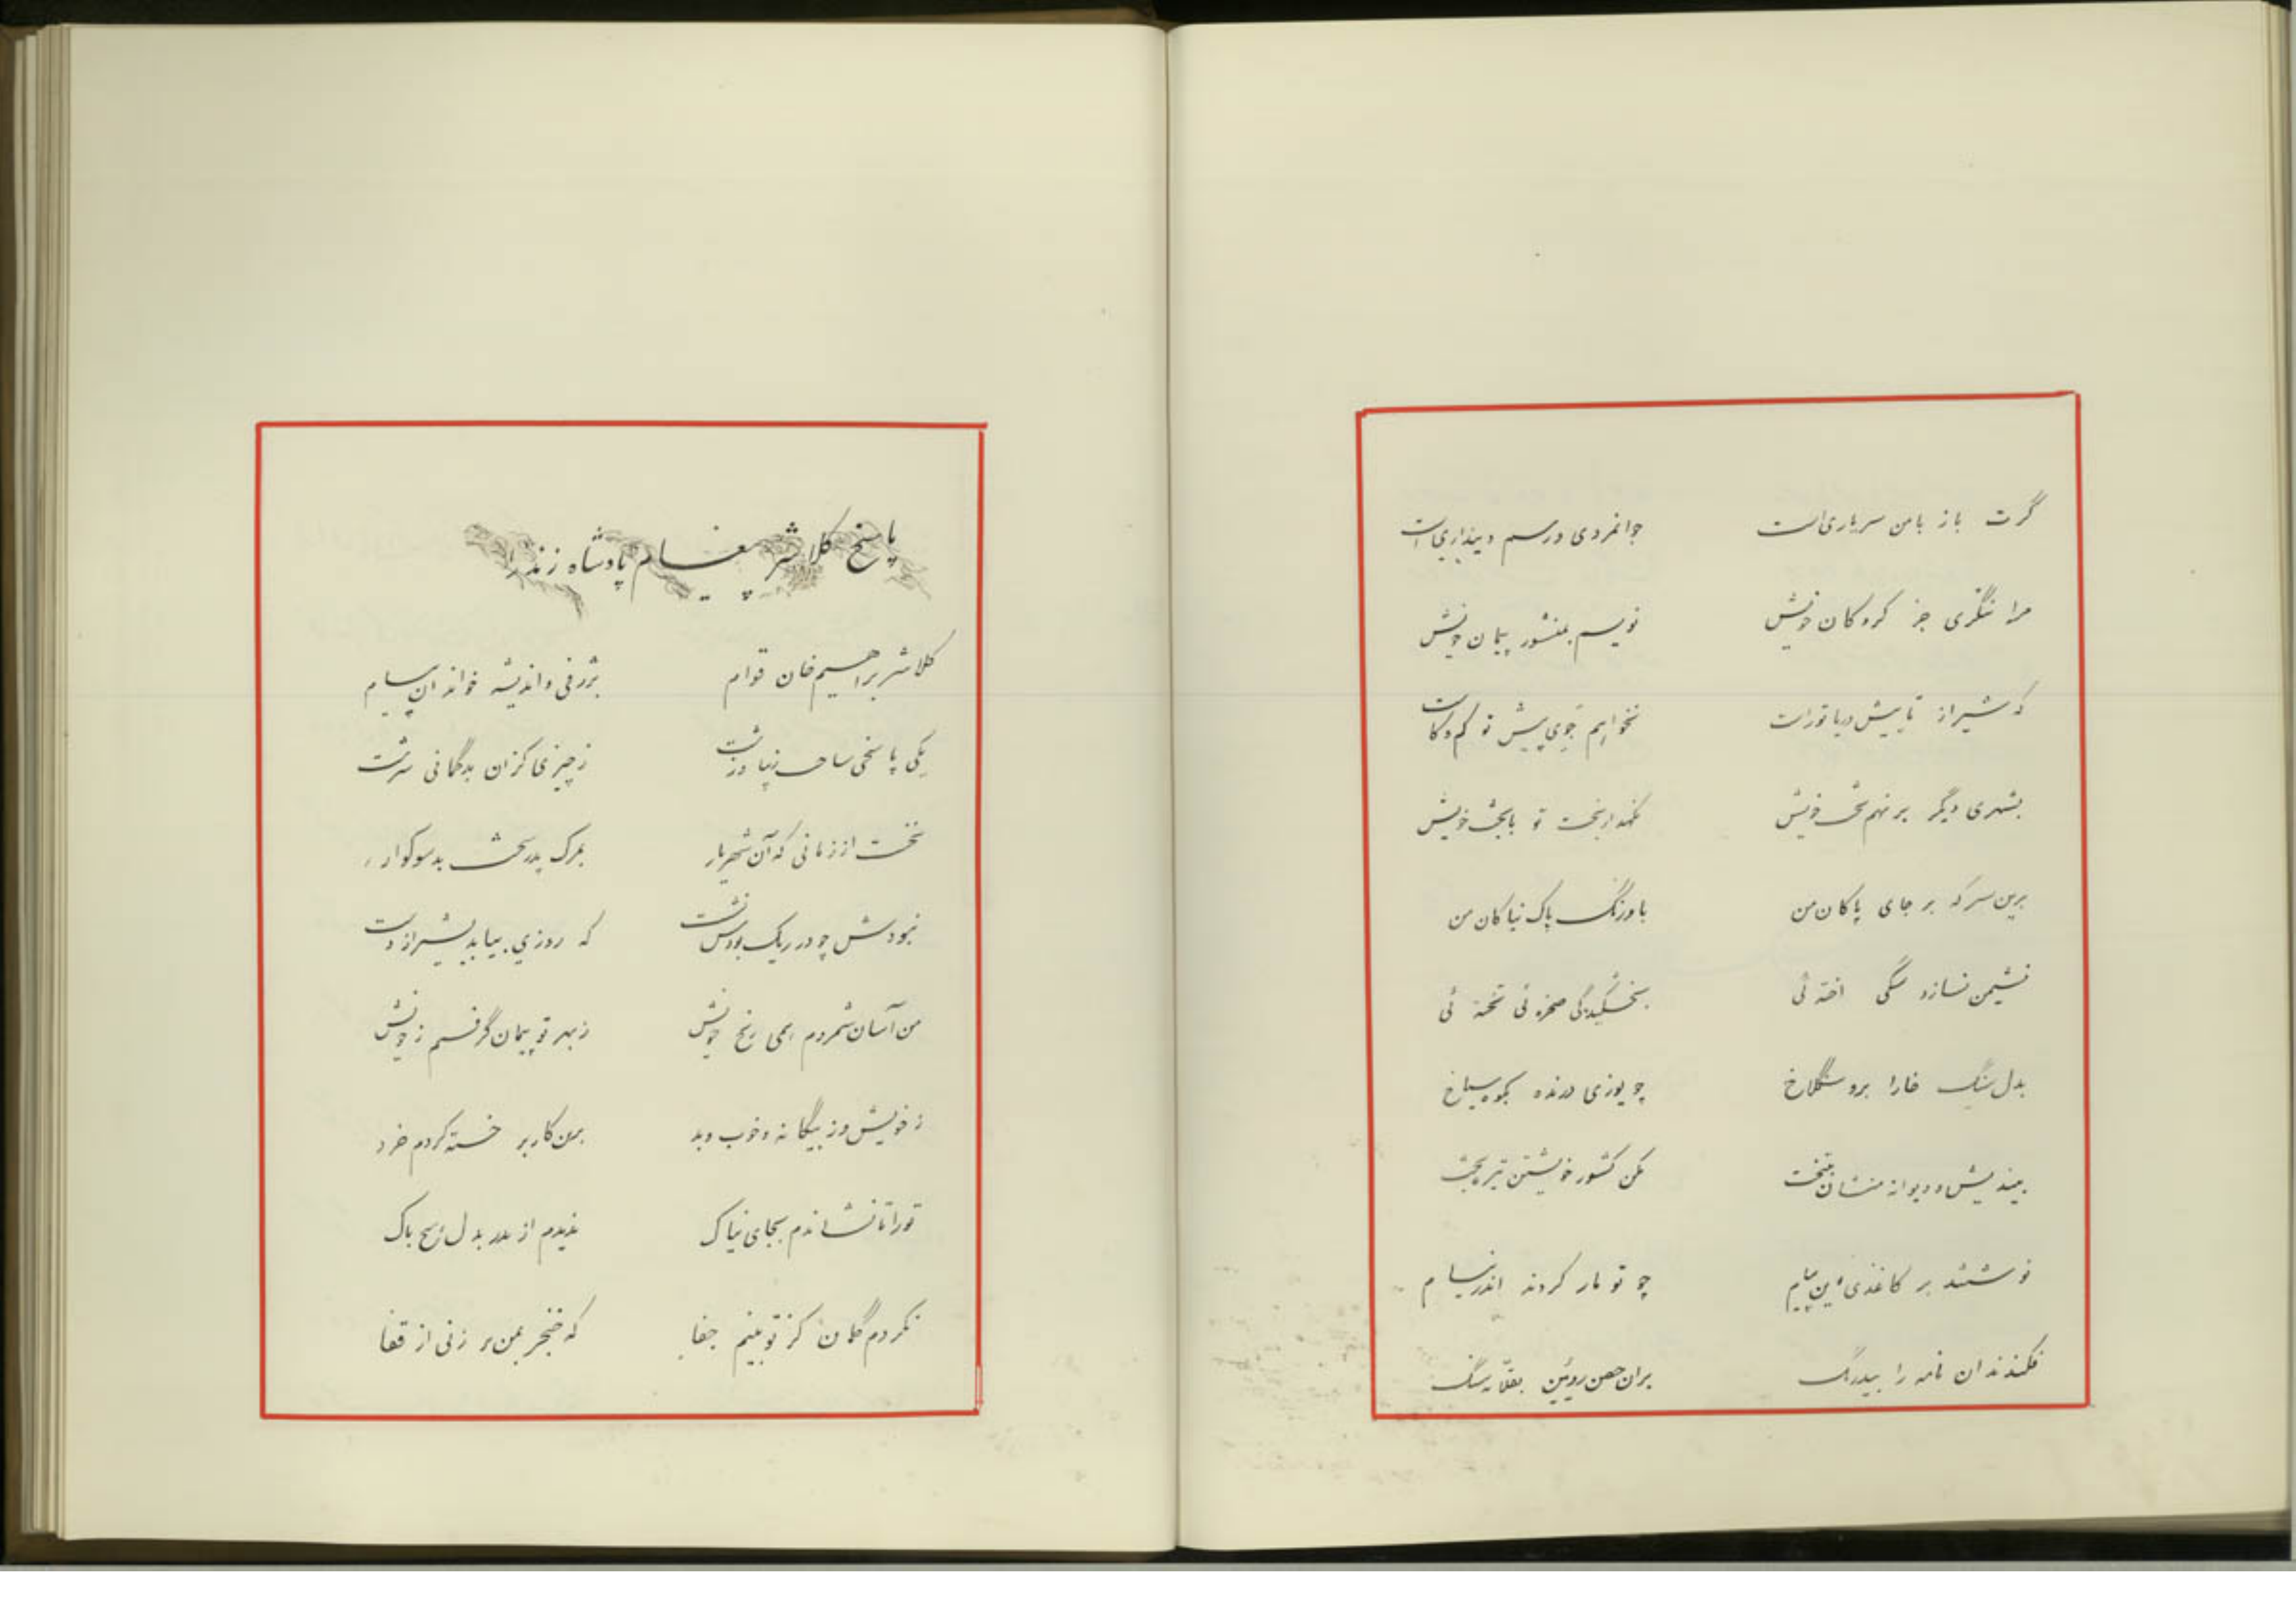 گرت باز بامن سریاری است جوانمردی ورسم دینداری است
مرا ننگری جز کروکان خویش نویسم بمنشور پیمان خویش
که شیراز تا پیش دریا تو راست نخواهیم جوی پیش تو کم و کاست
بشهری دیگر برنهم تخت خویش نگهدار بخت تو با بخت خویش
برین سر که بر جای پاکان من باورنگ پاک نیاکان من
نشیمن نسازد سگی اخته ئی بخشکیدگی صخره ئی تخته ئی
بدل سنگ خارا برو سنگلاخ چو یوزی درنده بکوه سیاخ
بیندیش و دیوانه منشان بتخت مکن کشور خویشتن تیره بخت
نوشتند بر کاغذی این پیام چو تومار کردند اندر نیام
فکندند ان نامه را بیدرنگ بران حصن روئین بقلابه سنگ
پاسخ کلانتر پیغام پادشاه زند را
کلانتر براهیم خان قوام بژرفی و اندیشه خواند ان پیام
یکی پاسخی ساخت زیبا و زشت ز چیزی کزان بدگمانی سرشت
نخست از زمانی که آن شهریار بمرگ پدر سخت بد سوگوار
نبودش چو در ریگ بودش نشست که روزی بیابد بشیراز دست
من آسان شمردم همی رنج خویش ز بهر تو پیمان گرفتم ز خویش
ز خویش و ز بیگانه و خوب و بد برین کار بر خسته کردم خرد
تو را تا نشاندم بجای نیاک ندیدم از بدل هیچ باک
نکردم گمان کز تو بینم جفا که خنجر بمن بر زنی از قفا